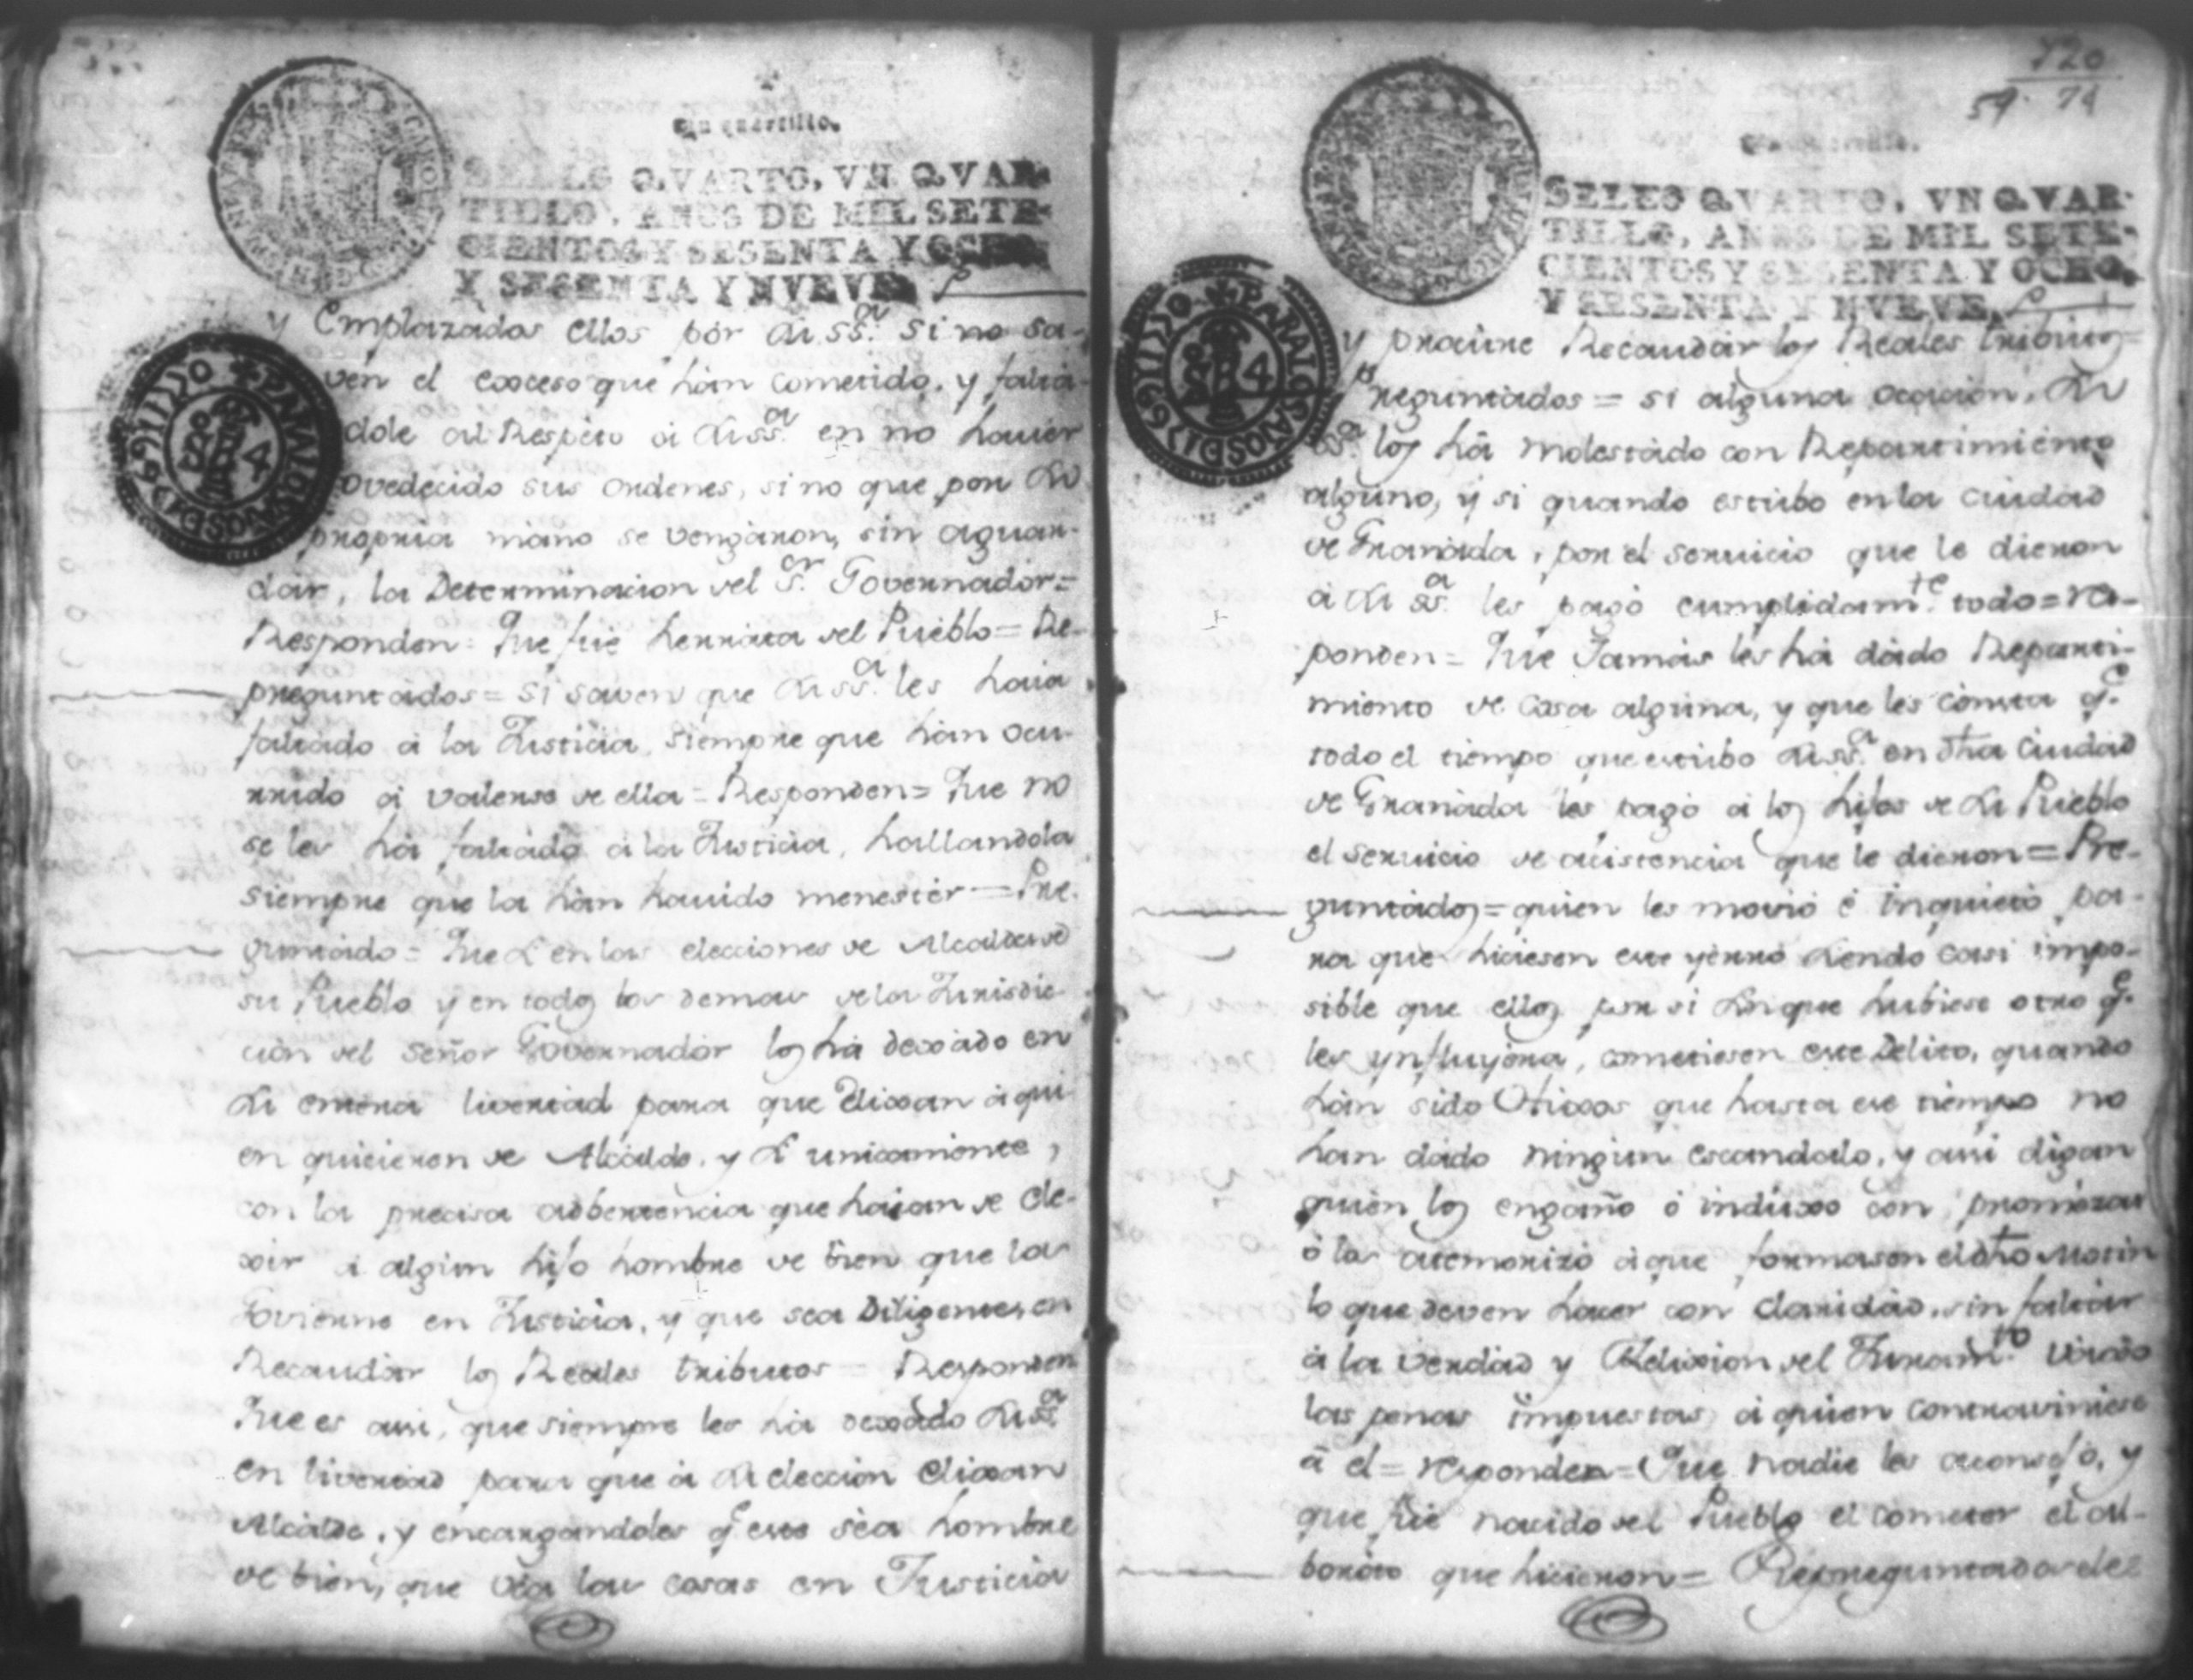 Un quartillo.
SELLO QVARTO, VN QVAR-
TILLO, AÑOS DE MIL SETE-
CIENTOS Y SESENTA Y OCHO
Y SESENTA Y NVEVE
PARA LOS AÑOS DE 1769 1770
4
y Emplazados ellos por su ssª. si no sa-
ven el exceso que han cometido, y falta-
dole al Respeto á su ssª. en no haver
ovedecido sus ordenes, sino que por su
propria mano se vengaron, sin aguar-
dar, la Determinacion del Sor. Governador=
Responden= Que fue herrata del Pueblo= Re-
preguntados= si saven que su ssª. les haia
faltado á la Justicia, siempre que han ocu-
rrido á valerse de ella= Responden= Que no
se les há faltado á la Justicia, hallandola
siempre que la han havido menester= Pre-
guntado= Que si en las elecciones de Alcaldes de
su Pueblo y en todos los demas de la Jurisdic-
cion del señor Governador los há dexado en
su entera livertad para que elixan á qui-
en quicieren de Alcalde, y si unicamente,
con la precisa adbertencia que haian de ele-
xir á algun hijo hombre de bien que los
Govierne en Justicia, y que sea Diligente en
Recaudar los Reales tributos= Responden
Que es assi, que siempre les há dexado su ssª.
en livertad para que á su eleccion elixan
Alcalde, y encargandoles qe. este sea hombre
de bien, que vea las cosas en Justicia
720
59 74
Un quartillo.
SELLO QVARTO, VN QVAR-
TILLO, AÑOS DE MIL SETE-
CIENTOS Y SESENTA Y OCHO,
Y SESENTA Y NVEVE.
PARA LOS AÑOS DE 1769 1770
4
y procure Recaudar los Reales tributos=
Preguntados= si alguna ocacion, su
ssª. los há molestado con Repartimiento
alguno, y si quando estubo en la ciudad
de Granada, por el servicio que le dieron
á su ssª. les pagó cumplidamte. todo= res-
ponden= Que Jamas les há dado Reparti-
miento de cosa alguna, y que les consta qe.
todo el tiempo que estubo su ssª. en dha Ciudad
de Granada les pagó á los hijos de su Pueblo
el servicio de acistencia que le dieron= Pre-
guntados= quien les movió é inquietó pa-
ra que hiciesen este yerro siendo casi impo-
sible que ellos por si sin que hubiese otro qe.
les ynfluyera, cometiesen este Delito, quando
han sido Otixos que hasta ese tiempo no
han dado ningun escandalo, y assi digan
quien los engaño ó induxo con promezas
ó los atemorizó á que formasen el dho Motin
lo que deven hacer con claridad, sin faltar
á la verdad y Relixion del Juramto. vaxo
las penas impuestas á quien contraviniese
á el= responden= Que nadie les aconsejó, y
que fue nacido del Pueblo el cometer el al-
boroto que hicieron= Repreguntadosles